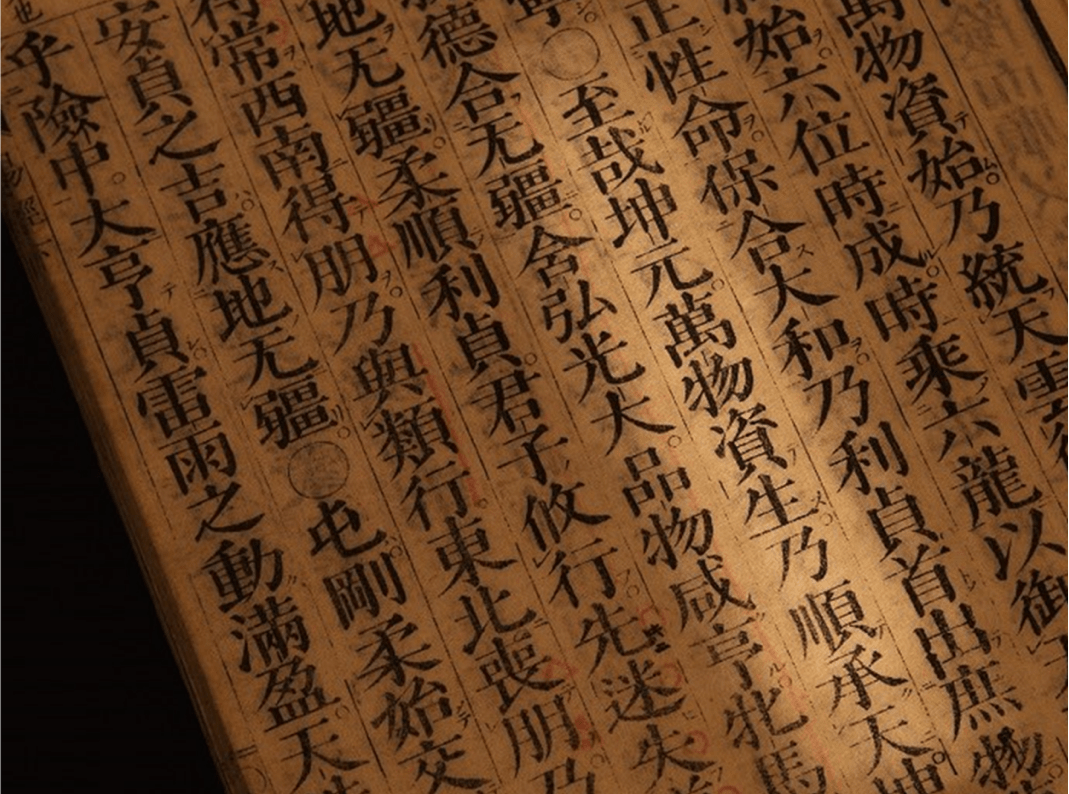 萬物資始乃統天雲
始六位時成時乘六龍以御
正性命保合大和乃利貞首出庶物
寧○至哉坤元萬物資生乃順承天坤
德合无疆含弘光大品物咸亨牝馬
地无疆柔順利貞君子攸行先迷失
得常西南得朋乃與類行東北喪朋乃
安貞之吉應地无疆○屯剛柔始交
乎險中大亨貞雷雨之動滿盈天
也